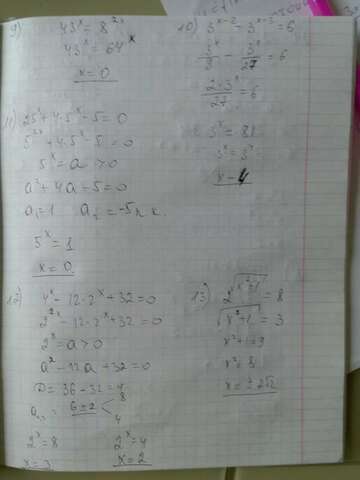 9) 43^x = 8^{2x}
43^x = 64^x
x = 0
10) 3^{x-2} - 3^{x-3} = 6
3^x/9 - 3^x/27 = 6
2·3^x/27 = 6
3^x = 81
x = 4
11) 25^x + 4·5^x - 5 = 0
5^{2x} + 4·5^x - 5 = 0
5^x = a > 0
a² + 4a - 5 = 0
a₁ = 1 a₂ = -5 п.к.
5^x = 1
x = 0
12) 4^x - 12·2^x + 32 = 0
2^{2x} - 12·2^x + 32 = 0
2^x = a > 0
a² - 12a + 32 = 0
D = 36 - 32 = 4
6±2 < 8
4
2^x = 8 2^x = 4
x = 3 x = 2
13) 2^{√(x²+1)} = 8
√(x²+1) = 3
x² + 1 = 9
x² = 8
x = ± 2√2